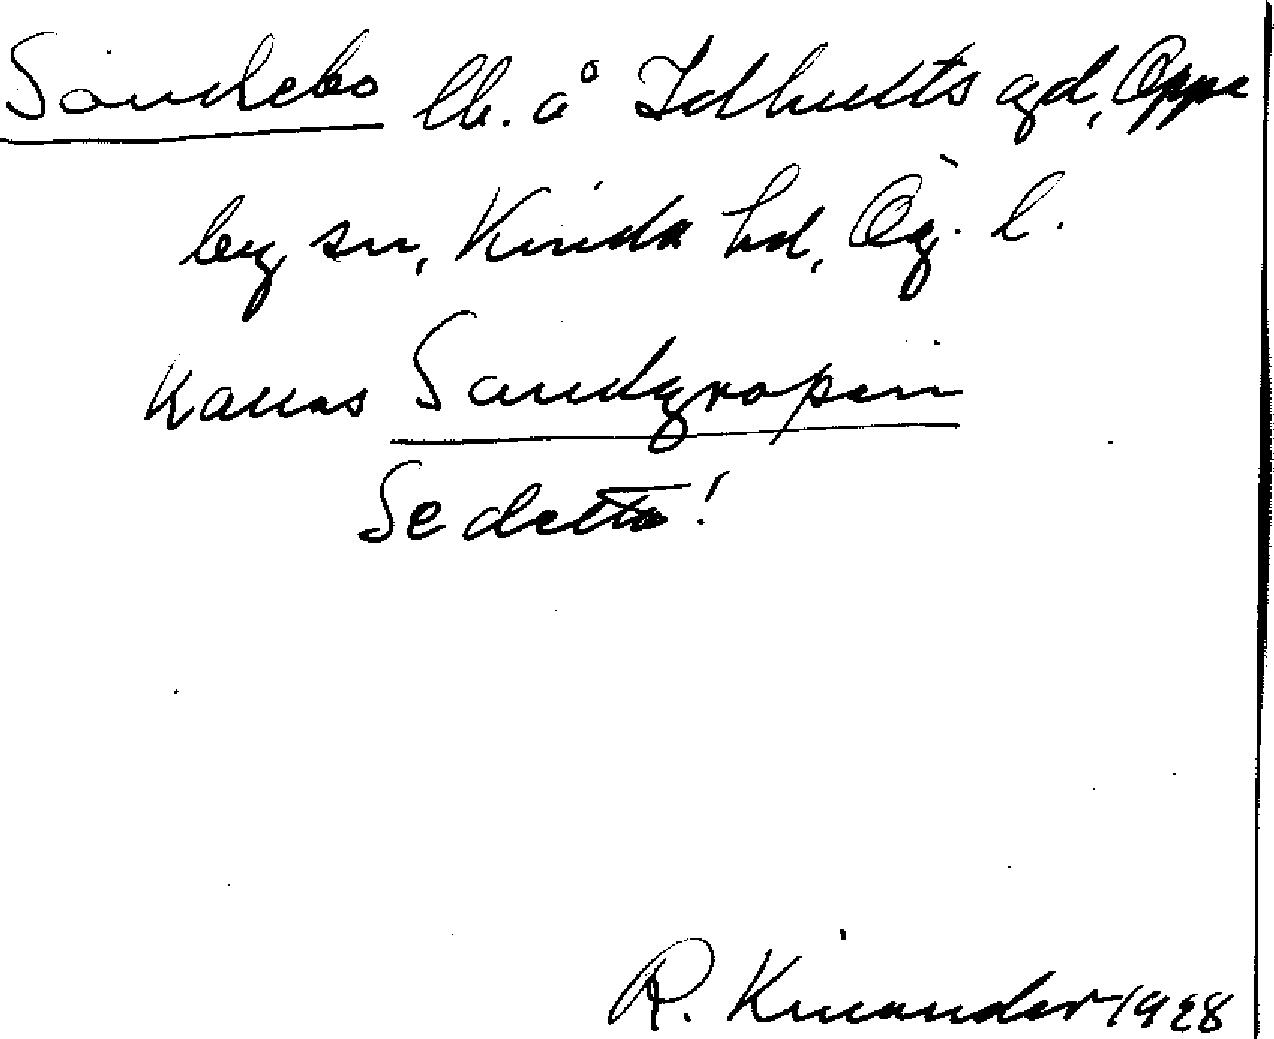 Sandebo lb. å Idhults gd, Oppe
by sn, Kinda hd, Ög. l.
Kallas Sandgropen
Se detta!
R. Kinander 1928